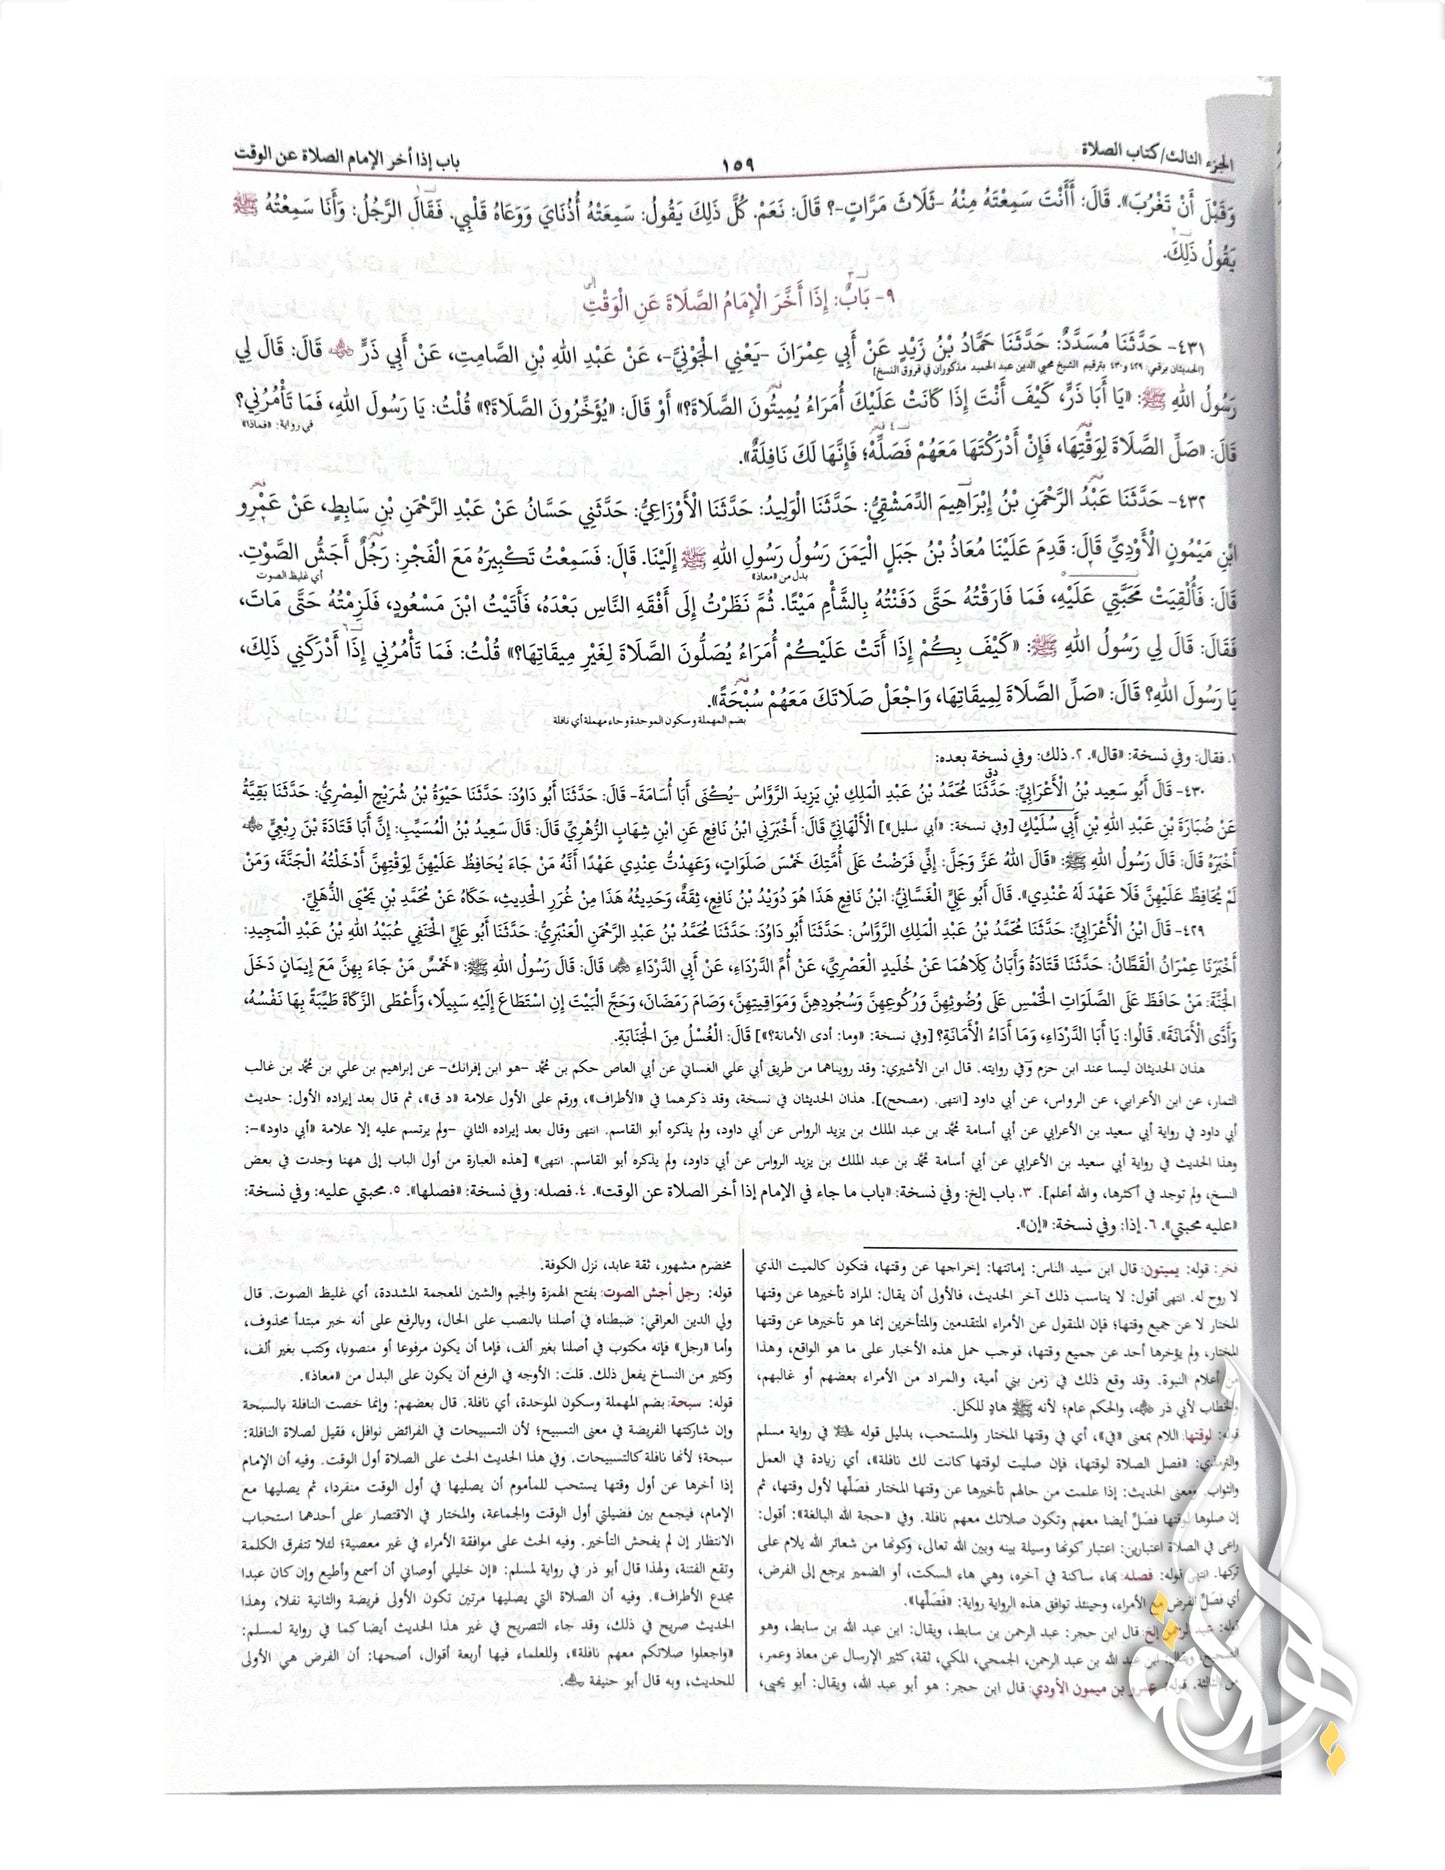 الجزء الثالث/كتاب الصلاة ١٥٩ باب إذا أخر الإمام الصلاة عن الوقت
وَقَبْلَ أَنْ تَغْرُبَ». قَالَ: أَأَنْتَ سَمِعْتَهُ مِنْهُ -ثَلَاثَ مَرَّاتٍ-؟ قَالَ: نَعَمْ. كُلَّ ذَلِكَ يَقُولُ: سَمِعَتْهُ أُذُنَايَ وَوَعَاهُ قَلْبِي. فَقَالَ الرَّجُلُ: وَأَنَا سَمِعْتُهُ ﷺ
يَقُولُ ذَلِكَ.
٩- بَابٌ: إِذَا أَخَّرَ الْإِمَامُ الصَّلَاةَ عَنِ الْوَقْتِ
٤٣١- حَدَّثَنَا مُسَدَّدٌ: حَدَّثَنَا حَمَّادُ بْنُ زَيْدٍ عَنْ أَبِي عِمْرَانَ -يَعْنِي الْجَوْنِيَّ-، عَنْ عَبْدِ اللهِ بْنِ الصَّامِتِ، عَنْ أَبِي ذَرٍّ ﷺ قَالَ: قَالَ لِي
[الحديثان برقمي: ٤٢٩ و٤٣٠ بترقيم الشيخ محيي الدين عبد الحميد مذكوران في فروق النسخ]
رَسُولُ اللهِ ﷺ: «يَا أَبَا ذَرٍّ، كَيْفَ أَنْتَ إِذَا كَانَتْ عَلَيْكَ أُمَرَاءُ يُمِيتُونَ الصَّلَاةَ؟» أَوْ قَالَ: «يُؤَخِّرُونَ الصَّلَاةَ؟» قُلْتُ: يَا رَسُولَ اللهِ، فَمَا تَأْمُرُنِي؟
في رواية: «فماذا»
قَالَ: «صَلِّ الصَّلَاةَ لِوَقْتِهَا، فَإِنْ أَدْرَكْتَهَا مَعَهُمْ فَصَلِّهْ؛ فَإِنَّهَا لَكَ نَافِلَةٌ».
٤٣٢- حَدَّثَنَا عَبْدُ الرَّحْمَنِ بْنُ إِبْرَاهِيمَ الدِّمَشْقِيُّ: حَدَّثَنَا الْوَلِيدُ: حَدَّثَنَا الْأَوْزَاعِيُّ: حَدَّثَنِي حَسَّانُ عَنْ عَبْدِ الرَّحْمَنِ بْنِ سَابِطٍ، عَنْ عَمْرِو
ابْنِ مَيْمُونٍ الْأَوْدِيِّ قَالَ: قَدِمَ عَلَيْنَا مُعَاذُ بْنُ جَبَلٍ الْيَمَنَ رَسُولُ رَسُولِ اللهِ ﷺ إِلَيْنَا. قَالَ: فَسَمِعْتُ تَكْبِيرَهُ مَعَ الْفَجْرِ: رَجُلٌ أَجَشُّ الصَّوْتِ.
بدل من «معاذ» أي غليظ الصوت
قَالَ: فَأُلْقِيَتْ مَحَبَّتِي عَلَيْهِ، فَمَا فَارَقْتُهُ حَتَّى دَفَنْتُهُ بِالشَّأْمِ مَيْتًا. ثُمَّ نَظَرْتُ إِلَى أَفْقَهِ النَّاسِ بَعْدَهُ، فَأَتَيْتُ ابْنَ مَسْعُودٍ، فَلَزِمْتُهُ حَتَّى مَاتَ،
فَقَالَ: قَالَ لِي رَسُولُ اللهِ ﷺ: «كَيْفَ بِكُمْ إِذَا أَتَتْ عَلَيْكُمْ أُمَرَاءُ يُصَلُّونَ الصَّلَاةَ لِغَيْرِ مِيقَاتِهَا؟» قُلْتُ: فَمَا تَأْمُرُنِي إِذَا أَدْرَكَنِي ذَلِكَ،
يَا رَسُولَ اللهِ؟ قَالَ: «صَلِّ الصَّلَاةَ لِمِيقَاتِهَا، وَاجْعَلْ صَلَاتَكَ مَعَهُمْ سُبْحَةً».
بضم المهملة وسكون الموحدة وحاء مهملة أي نافلة
١. فقال: وفي نسخة: «قال». ٢. ذلك: وفي نسخة بعده:
٤٣٠- قَالَ أَبُو سَعِيد بْنُ الْأَعْرَابِيِّ: حَدَّثَنَا مُحَمَّدُ بْنُ عَبْدِ الْمَلِكِ بْنِ يَزِيدَ الرَّوَّاسُ -يُكْنَى أَبَا أُسَامَةَ- قَالَ: حَدَّثَنَا أَبُو دَاوُدَ: حَدَّثَنَا حَيْوَةُ بْنُ شُرَيْحٍ الْمِصْرِيُّ: حَدَّثَنَا بَقِيَّةُ
عَنْ ضُبَارَةَ بْنِ عَبْدِ اللهِ بْنِ أَبِي سُلَيْكٍ [وفي نسخة: «أبي سليل»] الْأَلْهَانِيِّ قَالَ: أَخْبَرَنِي ابْنُ نَافِعٍ عَنِ ابْنِ شِهَابٍ الزُّهْرِيِّ قَالَ: قَالَ سَعِيدُ بْنُ الْمُسَيِّبِ: إِنَّ أَبَا قَتَادَةَ بْنَ رِبْعِيٍّ
أَخْبَرَهُ قَالَ: قَالَ رَسُولُ اللهِ ﷺ: «قَالَ اللهُ عَزَّ وَجَلَّ: إِنِّي فَرَضْتُ عَلَى أُمَّتِكَ خَمْسَ صَلَوَاتٍ، وَعَهِدْتُ عِنْدِي عَهْدًا أَنَّهُ مَنْ جَاءَ يُحَافِظُ عَلَيْهِنَّ لِوَقْتِهِنَّ أَدْخَلْتُهُ الْجَنَّةَ، وَمَنْ
لَمْ يُحَافِظْ عَلَيْهِنَّ فَلَا عَهْدَ لَهُ عِنْدِي». قَالَ أَبُو عَلِيٍّ الْغَسَّانِيُّ: ابْنُ نَافِعٍ هَذَا هُوَ دُوَيْدُ بْنُ نَافِعٍ، ثِقَةٌ، وَحَدِيثُهُ هَذَا مِنْ غُرَرِ الْحَدِيثِ، حَكَاهُ عَنْ مُحَمَّدِ بْنِ يَحْيَى الذُّهَلِيِّ.
٤٢٩- قَالَ ابْنُ الْأَعْرَابِيِّ: حَدَّثَنَا مُحَمَّدُ بْنُ عَبْدِ الْمَلِكِ الرَّوَّاسُ: حَدَّثَنَا أَبُو دَاوُدَ: حَدَّثَنَا مُحَمَّدُ بْنُ عَبْدِ الرَّحْمَنِ الْعَنْبَرِيُّ: حَدَّثَنَا أَبُو عَلِيٍّ الْحَنَفِي عُبَيْدُ اللهِ بْنُ عَبْدِ الْمَجِيدِ:
أَخْبَرَنَا عِمْرَانُ الْقَطَّانُ: حَدَّثَنَا قَتَادَةُ وَأَبَانُ كِلَاهُمَا عَنْ خُلَيْدٍ الْعَصْرِيِّ، عَنْ أُمِّ الدَّرْدَاءِ، عَنْ أَبِي الدَّرْدَاءِ قَالَ: قَالَ رَسُولُ اللهِ ﷺ: «خَمْسٌ مَنْ جَاءَ بِهِنَّ مَعَ إِيمَانٍ دَخَلَ
الْجَنَّةَ: مَنْ حَافَظَ عَلَى الصَّلَوَاتِ الْخَمْسِ عَلَى وُضُوئِهِنَّ وَرُكُوعِهِنَّ وَسُجُودِهِنَّ وَمَوَاقِيتِهِنَّ، وَصَامَ رَمَضَانَ، وَحَجَّ الْبَيْتَ إِنِ اسْتَطَاعَ إِلَيْهِ سَبِيلًا، وَأَعْطَى الزَّكَاةَ طَيِّبَةً بِهَا نَفْسُهُ،
وَأَدَّى الْأَمَانَةَ». قَالُوا: يَا أَبَا الدَّرْدَاءِ، وَمَا أَدَاءُ الْأَمَانَةِ؟ [وفي نسخة: «وما: أدى الأمانة؟»] قَالَ: الْغُسْلُ مِنَ الْجَنَابَةِ.
هذان الحديثان ليسا عند ابن حزم وفي روايته. قال ابن الأشيري: وقد رويناهما من طريق أبي علي الغساني عن أبي العاص حكم بن محمد -هو ابن إفرانك- عن إبراهيم بن علي بن محمد بن غالب
التمار، عن ابن الأعرابي، عن الرواس، عن أبي داود [انتهى. (مصحح)]. هذان الحديثان في نسخة، وقد ذكرهما في «الأطراف»، ورقم على الأول علامة «د ق»، ثم قال بعد إيراده الأول: حديث
أبي داود في رواية أبي سعيد بن الأعرابي عن أبي أسامة محمد بن عبد الملك بن يزيد الرواس عن أبي داود، ولم يذكره أبو القاسم. انتهى وقال بعد إيراده الثاني -ولم يرتسم عليه إلا علامة «أبي داود»-:
وهذا الحديث في رواية أبي سعيد بن الأعرابي عن أبي أسامة محمد بن عبد الملك بن يزيد الرواس عن أبي داود، ولم يذكره أبو القاسم. انتهى» [هذه العبارة من أول الباب إلى ههنا وجدت في بعض
النسخ، ولم توجد في أكثرها، والله أعلم]. ٣. باب إلخ: وفي نسخة: «باب ما جاء في الإمام إذا أخر الصلاة عن الوقت». ٤. فصله: وفي نسخة: «فصلها». ٥. محبتي عليه: وفي نسخة:
«عليه محبتي». ٦. إذا: وفي نسخة: «إن».
فخر: قوله: يميتون: قال ابن سيد الناس: إماتتها: إخراجها عن وقتها، فتكون كالميت الذي
لا روح له. انتهى أقول: لا يناسب ذلك آخر الحديث، فالأولى أن يقال: المراد تأخيرها عن وقتها
المختار لا عن جميع وقتها؛ فإن المنقول عن الأمراء المتقدمين والمتأخرين إنما هو تأخيرها عن وقتها
المختار، ولم يؤخرها أحد عن جميع وقتها، فوجب حمل هذه الأخبار على ما هو الواقع، وهذا
من أعلام النبوة. وقد وقع ذلك في زمن بني أمية، والمراد من الأمراء بعضهم أو غالبهم،
والخطاب لأبي ذر، والحكم عام؛ لأنه ﷺ هادٍ للكل.
قوله: لوقتها: اللام بمعنى «في»، أي في وقتها المختار والمستحب، بدليل قوله في رواية مسلم
والترمذي: «فصل الصلاة لوقتها، فإن صليت لوقتها كانت لك نافلة»، أي زيادة في العمل
والثواب. ومعنى الحديث: إذا علمت من حالهم تأخيرها عن وقتها المختار فصَلِّها لأول وقتها، ثم
إن صلوها لوقتها فصَلِّ أيضا معهم وتكون صلاتك معهم نافلة. وفي «حجة الله البالغة»: أقول:
راعى في الصلاة اعتبارين: اعتبار كونها وسيلة بينه وبين الله تعالى، وكونها من شعائر الله يلام على
تركها. انتهى قوله: فصله: بهاء ساكنة في آخره، وهي هاء السكت، أو الضمير يرجع إلى الفرض،
أي فصَلِّ الفرض مع الأمراء، وحينئذ توافق هذه الرواية رواية: «فَصَلِّها».
قوله: عبد الرحمن إلخ: قال ابن حجر: عبد الرحمن بن سابط، ويقال: ابن عبد الله بن سابط، وهو
الصحيح، ويقال: ابن عبد الله بن عبد الرحمن، الجمحي، المكي، ثقة، كثير الإرسال عن معاذ وعمر،
من الثالثة. قوله: عمرو بن ميمون الأودي: قال ابن حجر: هو أبو عبد الله، ويقال: أبو يحيى،
مخضرم مشهور، ثقة عابد، نزل الكوفة.
قوله: رجل أجش الصوت: بفتح الهمزة والجيم والشين المعجمة المشددة، أي غليظ الصوت. قال
ولي الدين العراقي: ضبطناه في أصلنا بالنصب على الحال، وبالرفع على أنه خبر مبتدأ محذوف،
وأما «رجل» فإنه مكتوب في أصلنا بغير ألف، فإما أن يكون مرفوعا أو منصوبا، وكتب بغير ألف،
وكثير من النساخ يفعل ذلك. قلت: الأوجه في الرفع أن يكون على البدل من «معاذ».
قوله: سبحة: بضم المهملة وسكون الموحدة، أي نافلة. قال بعضهم: وإنما خصت النافلة بالسبحة
وإن شاركتها الفريضة في معنى التسبيح؛ لأن التسبيحات في الفرائض نوافل، فقيل لصلاة النافلة:
سبحة؛ لأنها نافلة كالتسبيحات. وفي هذا الحديث الحث على الصلاة أول الوقت. وفيه أن الإمام
إذا أخرها عن أول وقتها يستحب للمأموم أن يصليها في أول الوقت منفردا، ثم يصليها مع
الإمام، فيجمع بين فضيلتي أول الوقت والجماعة، والمختار في الاقتصار على أحدهما استحباب
الانتظار إن لم يفحش التأخير. وفيه الحث على موافقة الأمراء في غير معصية؛ لئلا تتفرق الكلمة
وتقع الفتنة، ولهذا قال أبو ذر في رواية لمسلم: «إن خليلي أوصاني أن أسمع وأطيع وإن كان عبدا
مجدع الأطراف». وفيه أن الصلاة التي يصليها مرتين تكون الأولى فريضة والثانية نفلا، وهذا
الحديث صريح في ذلك، وقد جاء التصريح في غير هذا الحديث أيضا كما في رواية لمسلم:
«واجعلوا صلاتكم معهم نافلة»، وللعلماء فيها أربعة أقوال، أصحها: أن الفرض هي الأولى
للحديث، وبه قال أبو حنيفة.